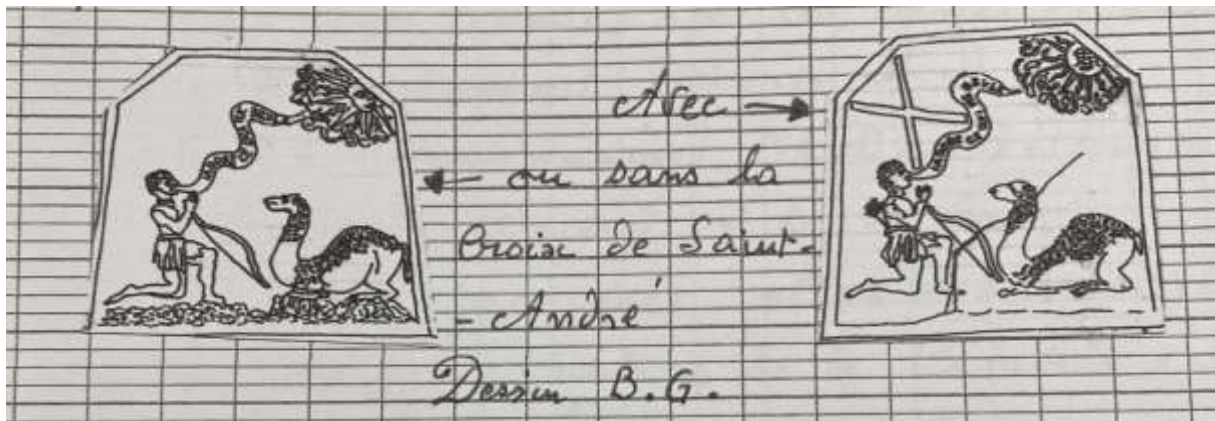 Avec
ou sans la
Croix de Saint-
- André
Dessin B.G.